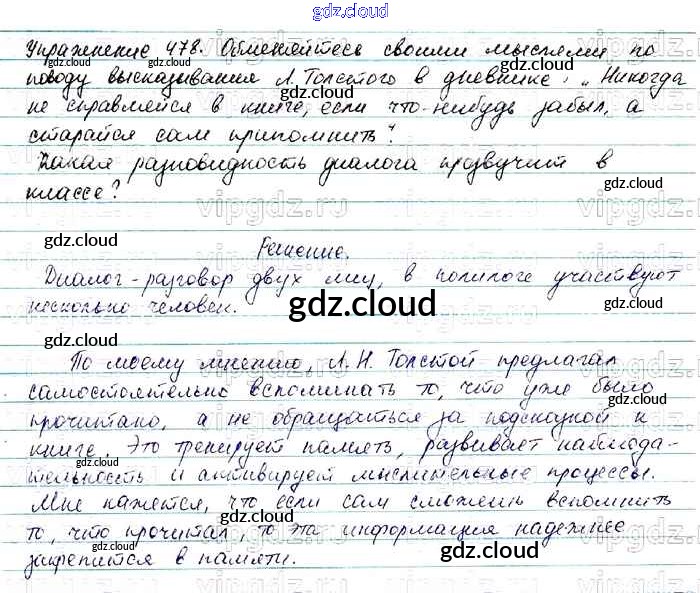 gdz.cloud
Упражнение 478. Обменяйтесь своими мыслями по
поводу высказывания Л. Толстого в дневнике: „Никогда
не справляйся в книге, если что-нибудь забыл, а
старайся сам припомнить".
Какая разновидность диалога прозвучит в
классе?
Решение.
Диалог - разговор двух лиц, в полилоге участвуют
несколько человек.
gdz.cloud
По моему мнению, Л. Н. Толстой предлагал
самостоятельно вспоминать то, что уже было
прочитано, а не обращаться за подсказкой к
книге. Это тренирует память, развивает наблюда-
тельность и активирует мыслительные процессы.
Мне кажется, что если сам сможешь вспомнить
то, что прочитал, то эта информация надежнее
закрепится в памяти.
gdz.cloud